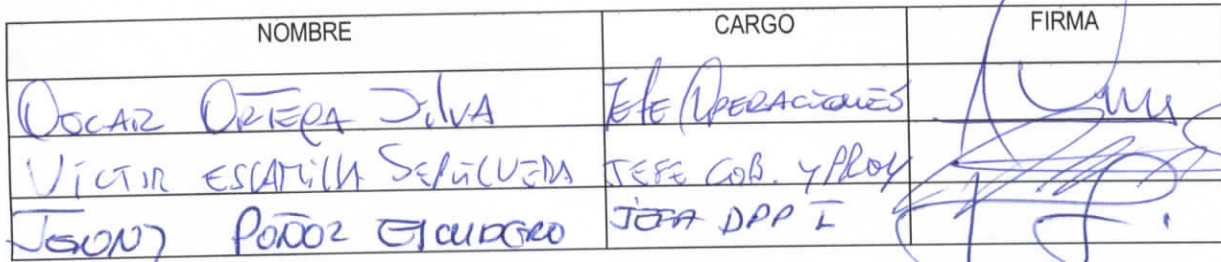 NOMBRE CARGO FIRMA
OSCAR ORTEGA SILVA JEFE OPERACIONES
VICTOR ESCAMILLA SEPULVEDA JEFE COB. Y PROY
JEFA DPP I